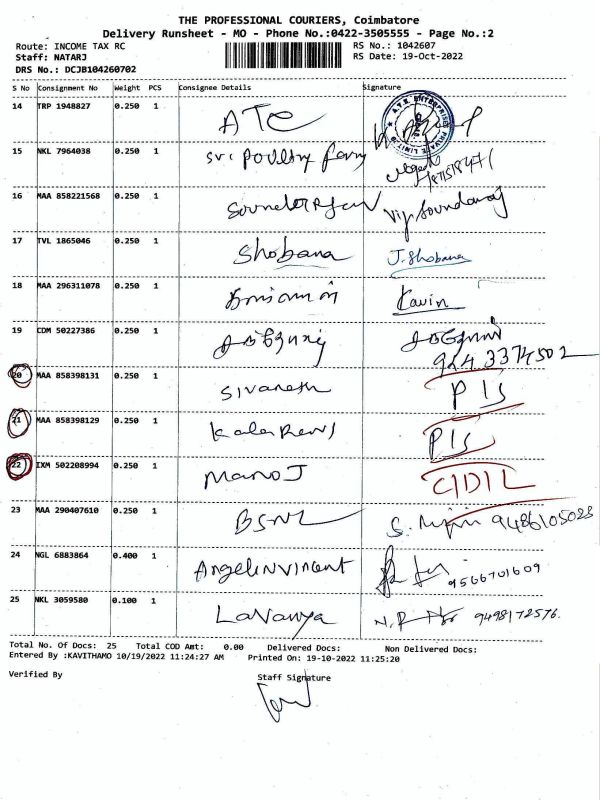 THE PROFESSIONAL COURIERS, Coimbatore
Delivery Runsheet - MO - Phone No.:0422-3505555 - Page No.:2
Route: INCOME TAX RC RS No.: 1042607
Staff: NATARJ RS Date: 19-Oct-2022
DRS No.: DCJB104260702
S No Consignment No Weight PCS Consignee Details Signature
14 TRP 1948827 0.250 1 ATC
A.T.E. ENTERPRISES PRIVATE LIMITED
15 NKL 7964038 0.250 1 Sri Poultry farm
16 MAA 858221568 0.250 1
17 TVL 1865046 0.250 1 Shobana J. Shobana
18 MAA 296311078 0.250 1 Kavin
19 CDM 50227386 0.250 1
20 MAA 858398131 0.250 1 Sivanesh P/S
21 MAA 858398129 0.250 1 P/S
22 IXM 502208994 0.250 1 Manoj C/D/L
23 MAA 290407610 0.250 1 BSNL 9486105023
24 NGL 6883864 0.400 1 Angelinvincent 9566701609
25 NKL 3059580 0.100 1 Lavanya 9498172576.
Total No. Of Docs: 25 Total COD Amt: 0.00 Delivered Docs: Non Delivered Docs:
Entered By :KAVITHAMO 10/19/2022 11:24:27 AM Printed On: 19-10-2022 11:25:20
Verified By Staff Signature